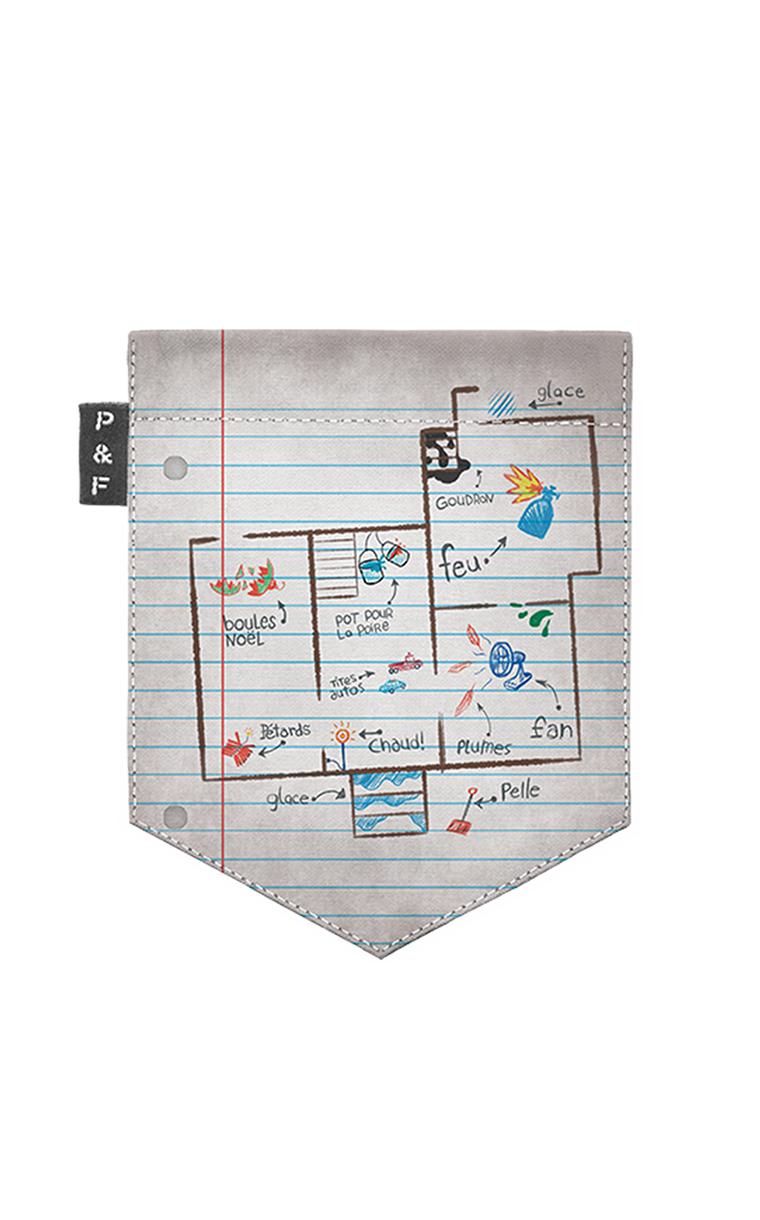 P
&
F
glace
GOUDRON
feu
boules
NOËL
POT POUR
La POIRE
TITES
autos
Pétards
Chaud!
Plumes
fan
glace
Pelle